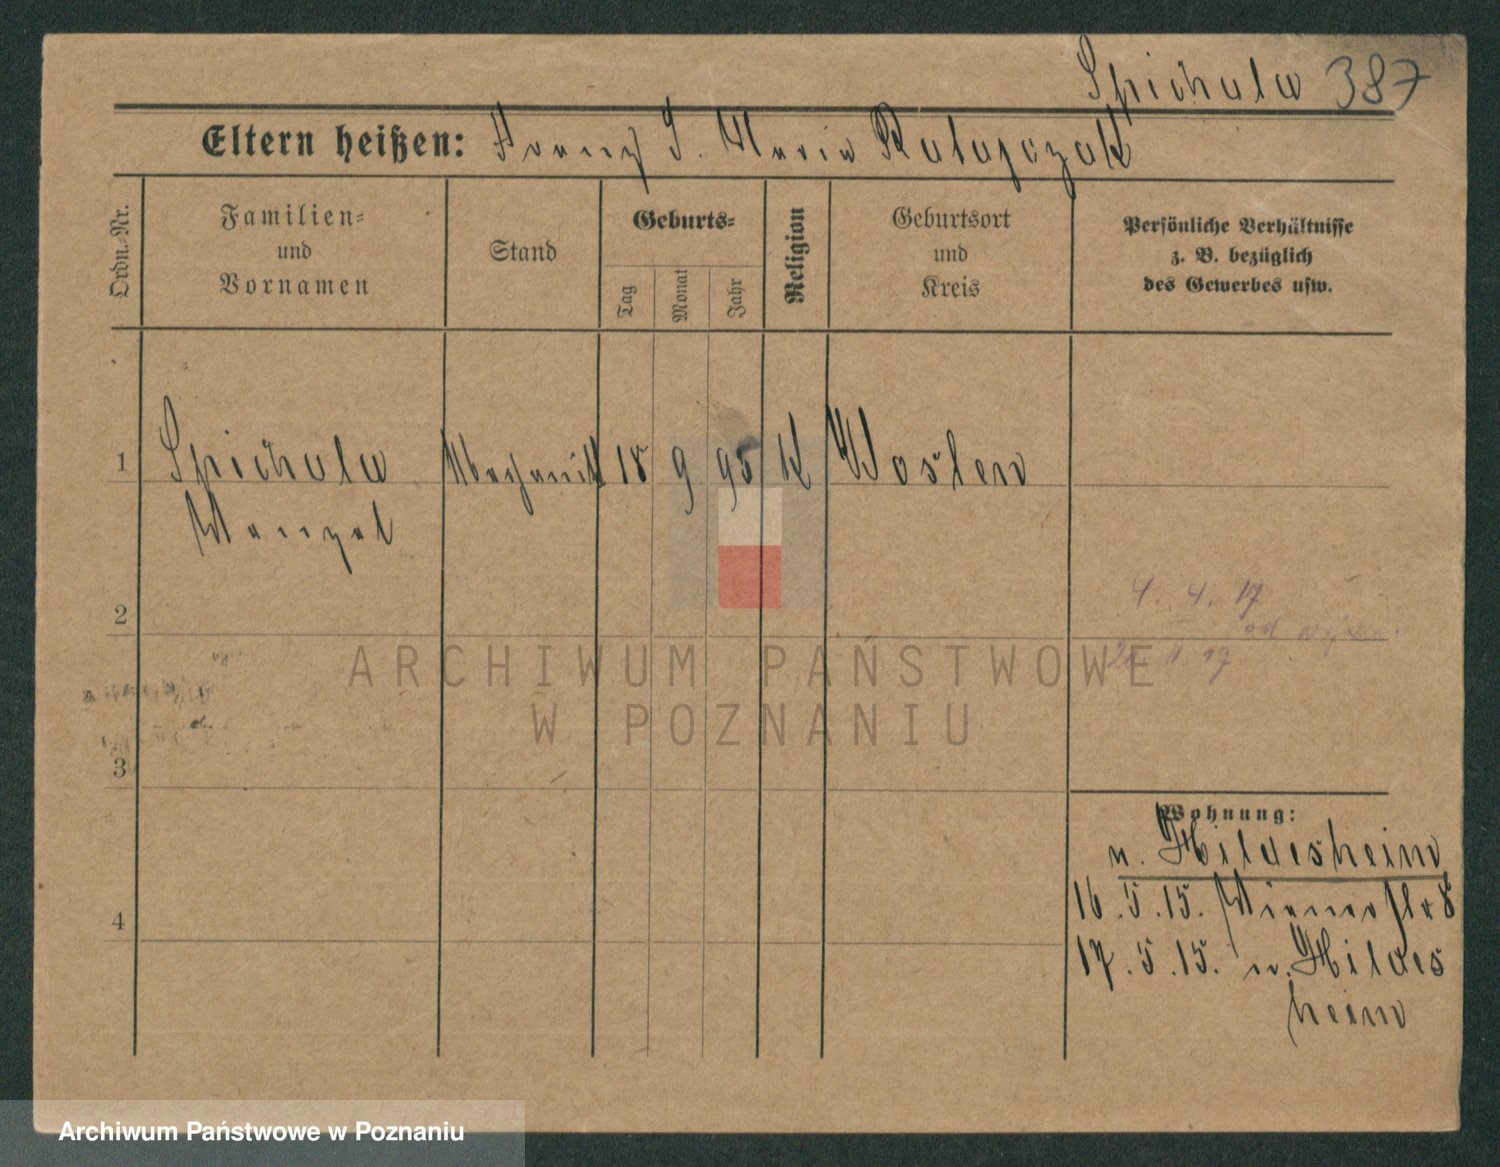 Spichala 387
Eltern heißen: Franz S. Maria Ratajczak
Ordn.-Nr.
Familien-
und
Vornamen
Stand
Geburts-
Tag
Monat
Jahr
Religion
Geburtsort
und
Kreis
Persönliche Verhältnisse
z. B. bezüglich
des Gewerbes usw.
1 Spichala Mechanik 18 9 95 K Woslen
Wenzel
2
4. 4. 17
od
11 17
3
Wohnung:
n. Hildesheim
16.5.15. Wienerstr 8
4
17.5.15. n. Hildes
heim
ARCHIWUM PAŃSTWOWE
W POZNANIU
Archiwum Państwowe w Poznaniu